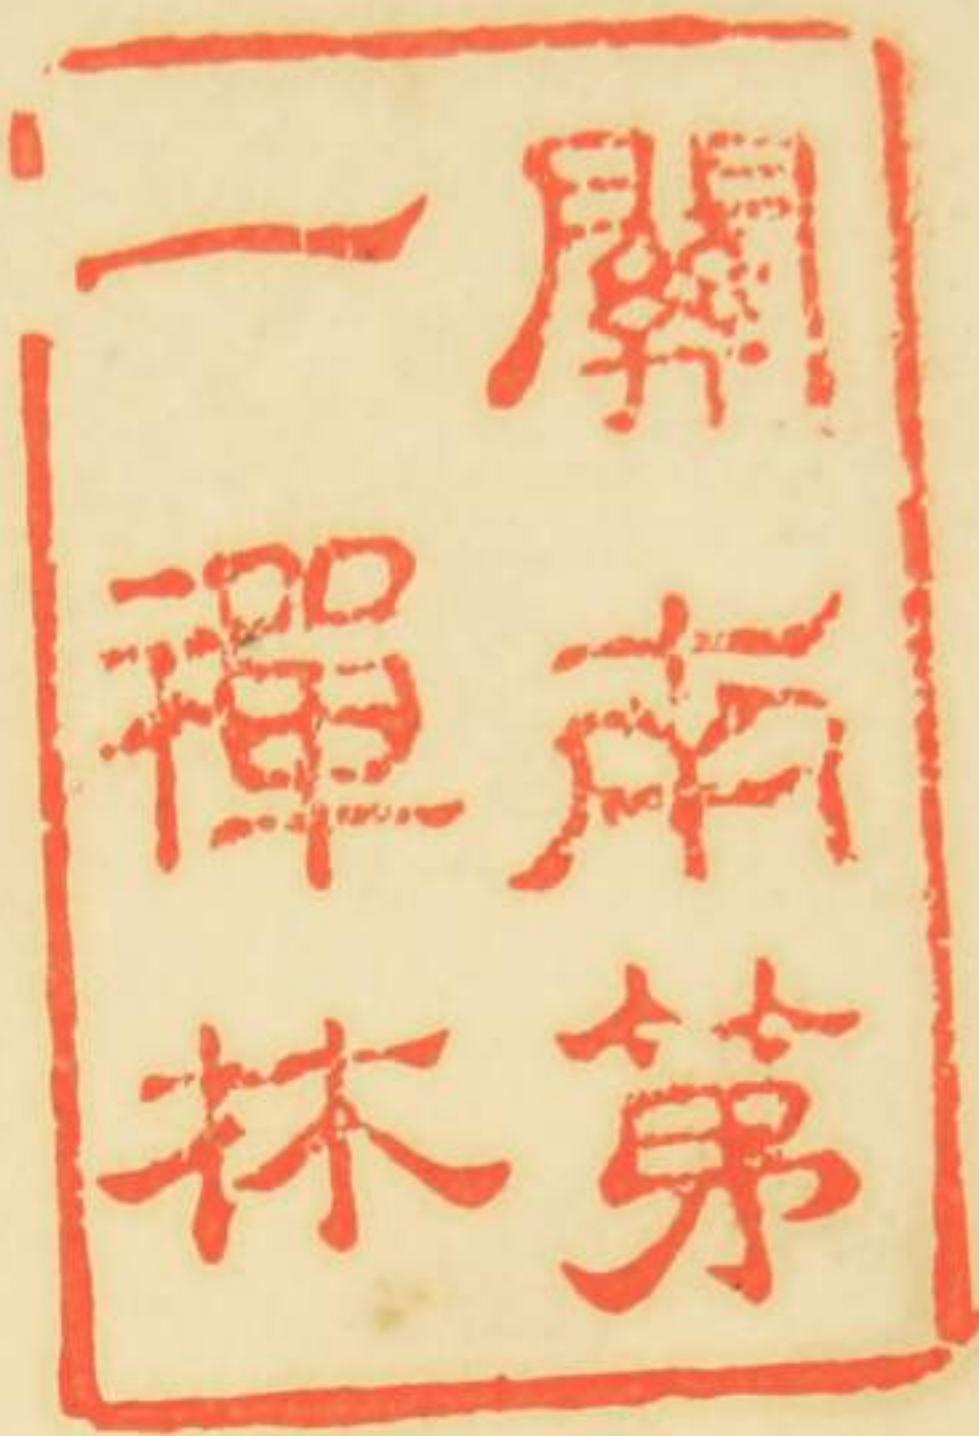 關南第
一禪林